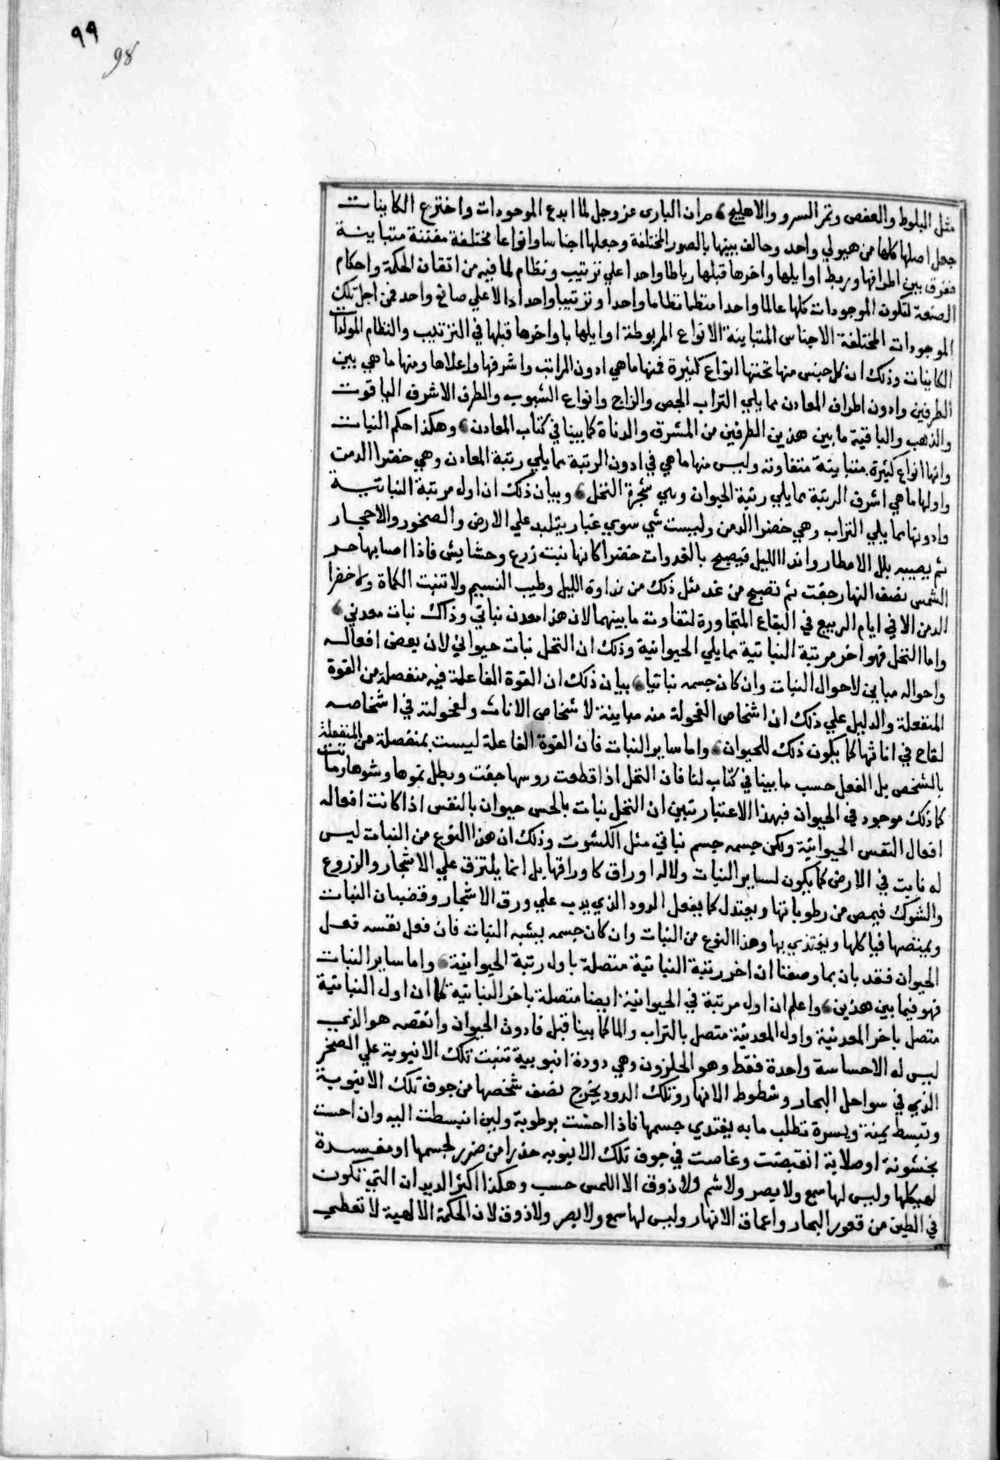 ٩٩
98
مثل البلوط والعفص وثمر السرو والاهليج ثم ان البارى عز وجل لما ابدع الموجودات واخترع الكاينات
جعل اصلها كلها من هيولي واحد وخالف بينها بالصور المختلفة وجعلها اجناسا وانواعا مختلفة مفننة متباينة
ففرق بين اطرافها وربط اوايلها واخرها قبلها رباطا واحدا علي ترتيب ونظام لما فيه من اتقان الحكمة واحكام
الصنعة لتكون الموجودات كلها عالما واحدا منتظما نظاما واحدا وترتيبا واحدا دالا علي صانع واحد فمن اجل تلك
الموجودات المختلفة الاجناس المتباينة الانواع المربوطة اوايلها باواخرها قبلها في الترتيب والنظام المولدات
الكاينات وذلك ان كل جنس منها تحتها انواع كثيرة فمنها ما هي ادون المراتب واشرفها واعلاها ومنها ما هي بين
الطرفين وادون اطراف المعادن مما يلي التراب الجص والزاج وانواع الشبوب والطرف الاشرف الياقوت
والذهب والباقية ما بين هذين الطرفين من المشرف والدناة كما بينا في كتاب المعادن وهكذا حكم النبات
وانها انواع كثيرة متباينة متفاوتة وليس منها ما هي في ادون الرتبة مما يلي رتبة المعادن وهي خضرا الدمن
واولها ما هي اشرف الرتبة مما يلي رتبة الحيوان وهي شجرة النخل وبيان ذلك ان اول مرتبة النباتية
وادونها مما يلي التراب وهي خضرا الدمن وليست شي سوي غبار يتلبد علي الارض والصخور والاحجار
ثم يصيبه بلل الامطار وانداا الليل فيصبح بالغدوات خضرا كانها نبت زرع وحشايش فاذا اصابها حر
الشمس نصف النهار جفت ثم تصبح من غد مثل ذلك من نداوة الليل وطيب النسيم ولا تنبت الكماة ولا خضرا
الدمن الا في ايام الربيع في البقاع المتجاورة لتفاوت ما بينهما لان هذا معدن نباتي وذاك نبات معدني
واما النخل فهو اخر مرتبة النباتية مما يلي الحيوانية وذلك ان النخل نبات حيواني لان بعض افعاله
واحواله مباين لاحوال النبات وان كان جسمه نباتيا بيان ذلك ان القوة الفاعلة فيه منفصلة من القوة
المنفعلة والدليل علي ذلك ان اشخاص الفحولة منه مباينة لاشخاص الاناث ولفحولته في اشخاصه
لقاح في اناثها كما يكون ذلك للحيوان واما ساير النبات فان القوة الفاعلة ليست بمنفصلة من المنفعلة
بالشخص بل الفعل حسب ما بينا في كتاب لنا فان النخل اذا قطعت روسها جفت وبطل نموها ونشوها وماتت
كما ذلك موجود في الحيوان فبهذا الاعتبار تبين ان النخل نبات بالحس حيوان بالنفس اذا كانت افعاله
افعال النفس الحيوانية ولكن جسمه جسم نباتي مثل الكشوت وذلك ان هذا النوع من النبات ليس
له نابت في الارض كما يكون لساير النبات ولا له اوراق كاوراقها بل انما يلتزق علي الاشجار والزروع
والشوك فيمص من رطوباتها ويغتدي كما يفعل الدود الذي يدب علي ورق الاشجار وقضبان النبات
ويمتصها فياكلها ويغتذي بها وهذا النوع من النبات وان كان جسمه يشبه النبات فان فعل نفسه فعل
الحيوان فقد بان بما وصفنا ان اخر رتبة النباتية متصلة باول رتبة الحيوانية واما ساير النبات
فهو فيما بين هذين واعلم ان اول مرتبة في الحيوانية ايضا متصلة باخر النباتية كما ان اول النباتية
متصل باخر المعدنية واول المعدنية متصل بالتراب والما كما بينا قبل فادون الحيوان وانقصه هو الذي
ليس له الا حساسة واحدة فقط وهو الحلزون وهي دودة انبوبية تنبت تلك الانبوبة علي الصخر
الذي في سواحل البحار وشطوط الانهار وتلك الدود يخرج نصف شخصها من جوف تلك الانبوبة
وتبسط يمنة ويسرة تطلب ما به يغتدي جسمها فاذا احست برطوبة ولين انبسطت اليه وان احست
بخشونة او صلابة انقبضت وغاصت في جوف تلك الانبوبه حذرا من ضرر لجسمها او مفسدة
لهيكلها وليس لها سمع ولا بصر ولا شم ولا ذوق الا اللمس حسب وهكذا اكثر الديدان التي تكون
في الطين من قعور البحار واعماق الانهار وليس لها سمع ولا بصر ولا ذوق لان الحكمة الالهية لا تعطي